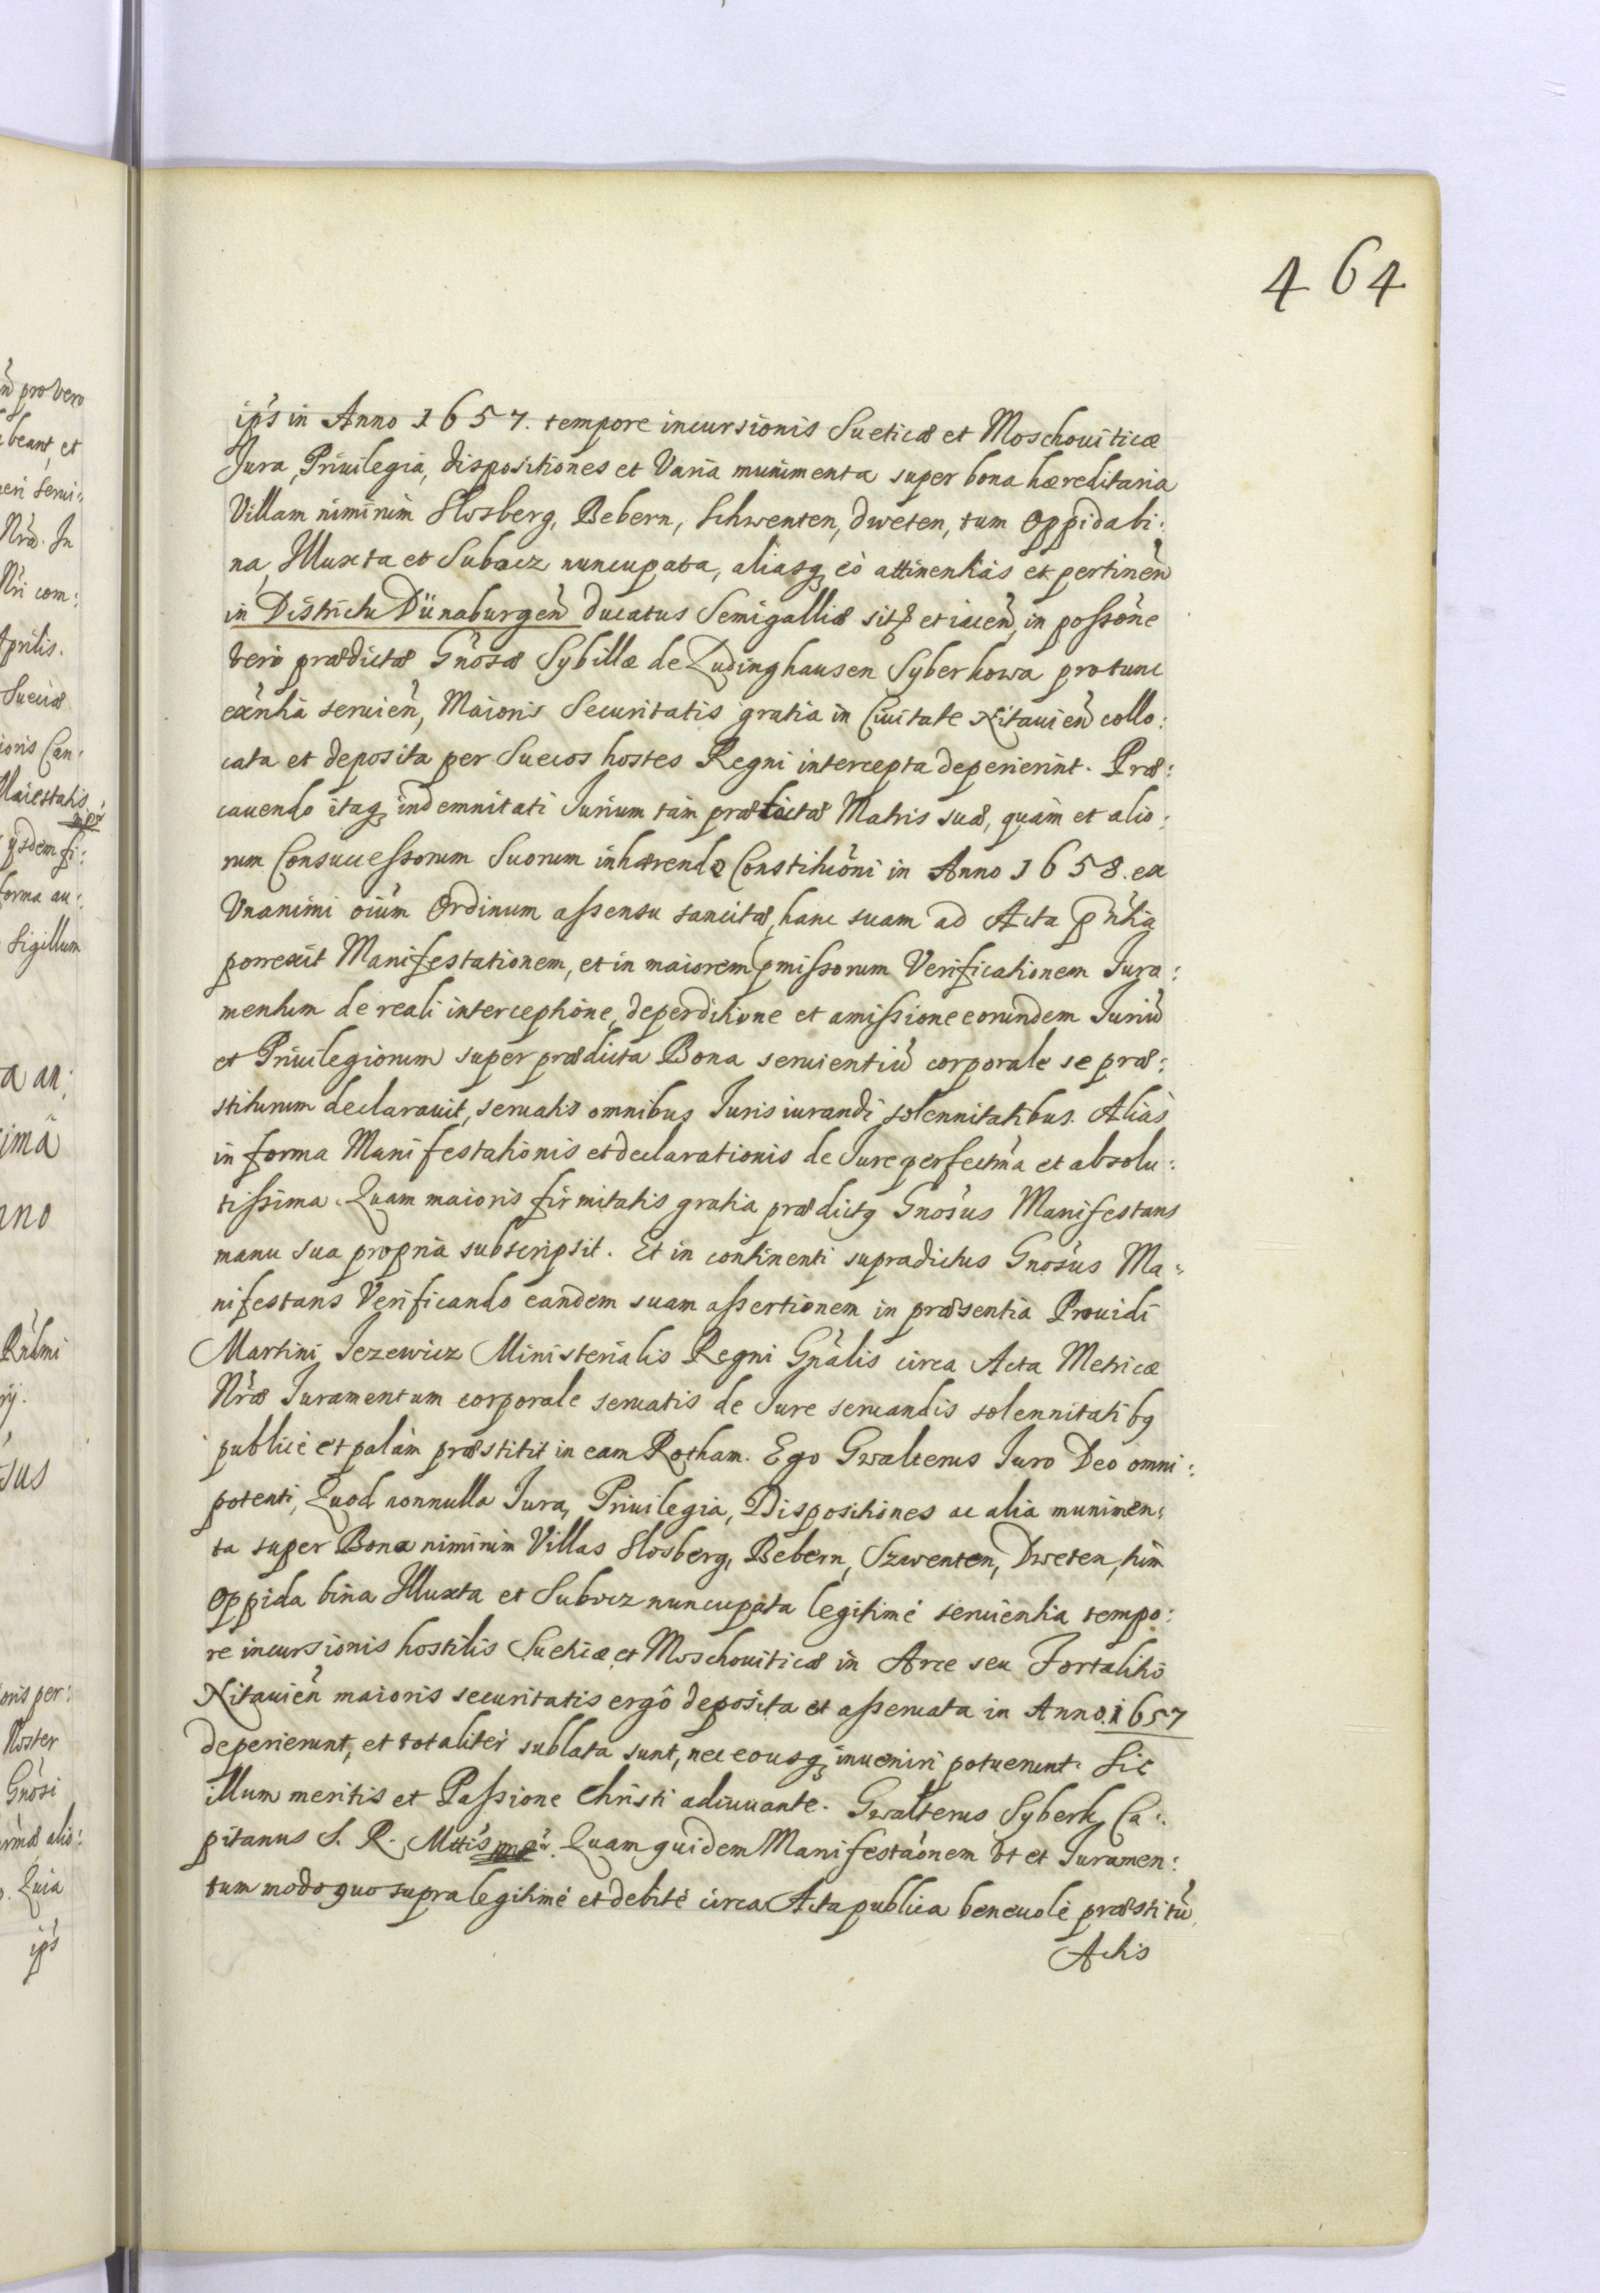 464
ip̃s in Anno 1657. tempore incursionis Sueticæ et Moschouiticæ
Jura, Priuilegia, dispositiones et Varia munimenta super bona hæreditaria
Villam nimirùm Slosberg, Bebern, Schwenten, Dweten, tum Oppida bi:
na, Illuxta et Subocz nuncupata, aliasq́ eò attinentias et pertineñ
in Districtu Dünaburgeñ Ducatus Semigalliæ sitę et iaceñ, in poßõne
verò prædictæ Gñosæ Sybillæ de Ludinghausen Syberkowa protunc
exñtia seruieñ, Maioris Securitatis gratia in Ciuitate Nitauieñ collo:
cata et deposita per Suecos hostes Regni intercepta deperierint. Præ:
cauendo itaq́ indemnitati Jurium tàm prædictæ Matris suæ, quàm et alio:
rum Consuccessorum Suorum inhærendo Constituõni in Anno 1658. ex
Vnanimi oiũm Ordinum assensu sancitæ, hanc suam ad Acta p̃ñtia
porrexit Manifestationem, et in maiorem p̃missorum Verificationem Jura:
mentum de reali interceptione, deperditione et amissione eorundem Juriũ
et Priuilegiorum super prædicta Bona seruientiũ corporale se præ:
stiturum declarauit, seruatis omnibus Juris iurandi solennitatibus. Aliàs
in forma Manifestationis et declarationis de Jure perfectm̃a et absolu:
tissima. Quam maioris firmitatis gratia prædictg Gnõsus Manifestans
manu sua propria subscripsit. Et in continenti supradictus Gnõsus Ma:
nifestans Verificando eandem suam assertionem in præsentia Prouidi
Martini Jezewicz Ministerialis Regni Gñalis circa Acta Metricæ
Nr̃æ Juramentum corporale seruatis de Jure seruandis solennitatibg
publicè et palàm præstitit in eam Rotham. Ego Gwalterus Juro Deo omni:
potenti, Quod nonnulla Jura, Priuilegia, Dispositiones ac alia munimen:
ta super Bona nimirùm Villas Slosberg, Bebern, Szwenten, Dweten, tùm
Oppida bina Illuxta et Subocz nuncupata legitimè seruientia tempo:
re incursionis hostilis Sueticæ et Moschouiticæ in Arce seu Fortalitio
Nitauieñ maioris securitatis ergô deposita et asseruata in Anno 1657
deperierunt, et totaliter sublata sunt, nec eousq́ inueniri potuerunt. Sic
illum meritis et Passione Christi adiuuante. Gwalterus Syberk Ca:
pitanus S. R. Mttis mpr̃. Quam quidem Manifestaõnem vt et Juramen:
tum modo quo supra legitimè et debitè circa Acta publica beneuolè præstitũ
Actis